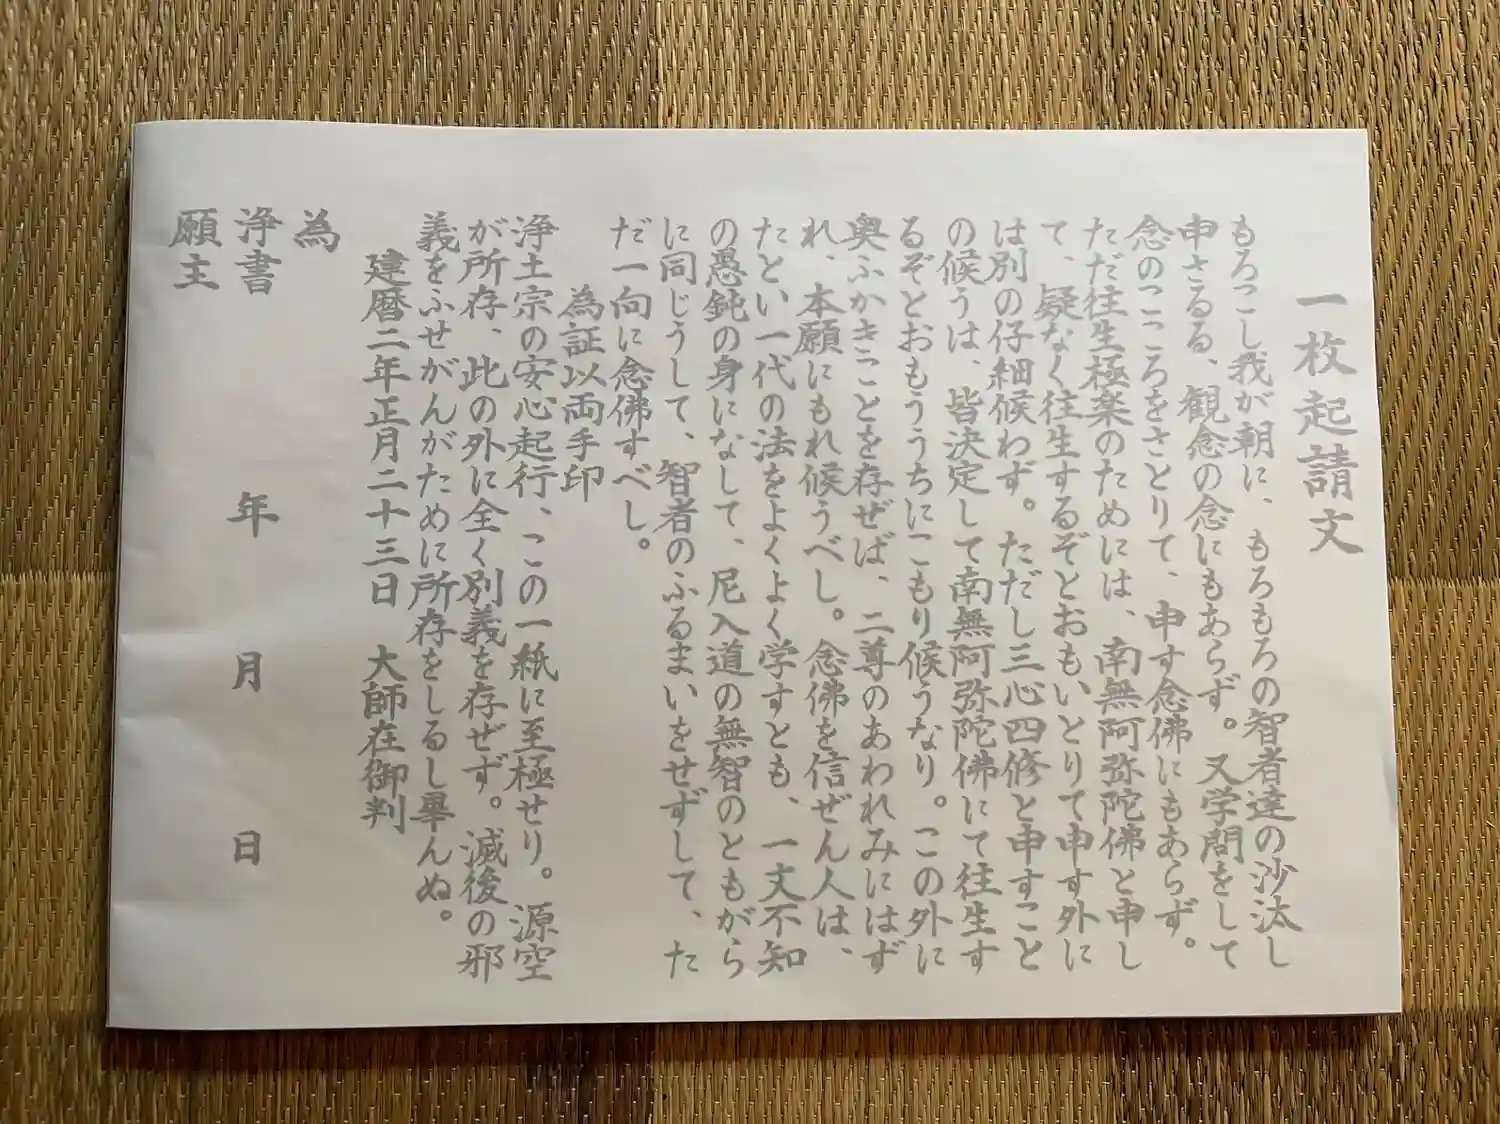 一枚起請文
もろこし我が朝に、もろもろの智者達の沙汰し
申さるる、観念の念にもあらず。又学問をして
念のこころをさとりて、申す念佛にもあらず。
ただ往生極楽のためには、南無阿弥陀佛と申し
て、疑なく往生するぞとおもいとりて申す外に
は別の仔細候わず。ただし三心四修と申すこと
の候うは、皆決定して南無阿弥陀佛にて往生す
るぞとおもううちにこもり候うなり。この外に
奥ふかきことを存ぜば、二尊のあわれみにはず
れ、本願にもれ候うべし。念佛を信ぜん人は、
たとい一代の法をよくよく学すとも、一文不知
の愚鈍の身になして、尼入道の無智のともがら
に同じうして、智者のふるまいをせずして、た
だ一向に念佛すべし。
為証以両手印
浄土宗の安心起行、この一紙に至極せり。源空
が所存、此の外に全く別義を存ぜず。滅後の邪
義をふせがんがために所存をしるし畢んぬ。
建暦二年正月二十三日 大師在御判
為
浄書 年 月 日
願主